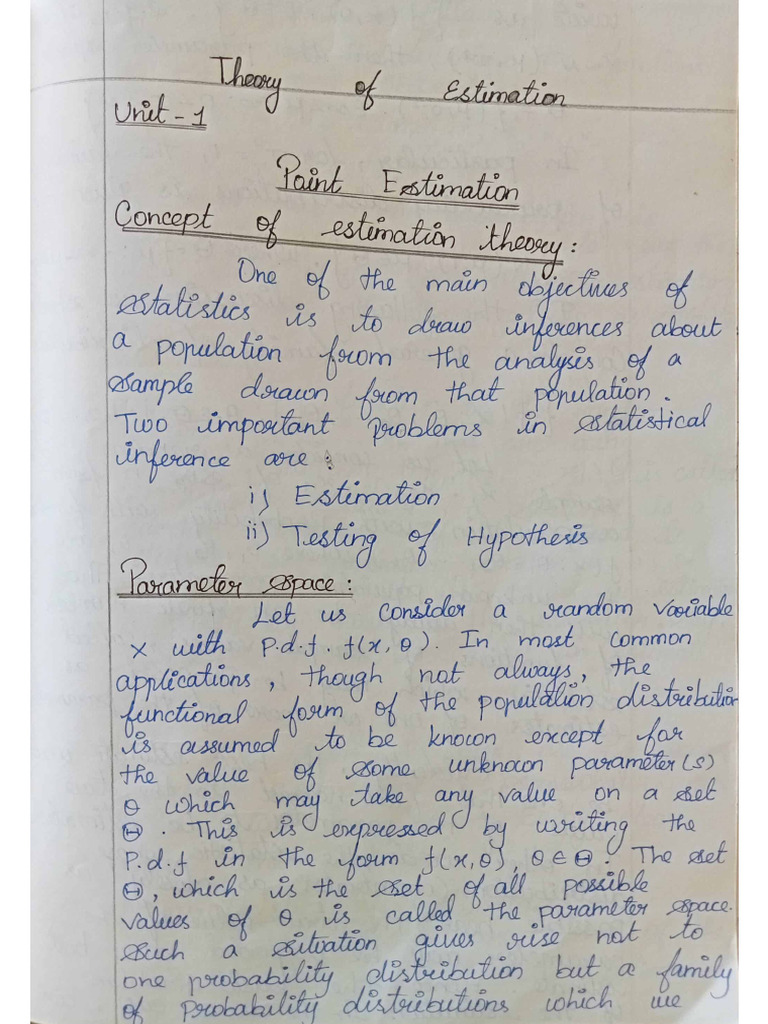 Theory of Estimation
Unit - 1
Point Estimation
Concept of estimation theory :
One of the main objectives of
statistics is to draw inferences about
a population from the analysis of a
sample drawn from that population.
Two important problems in statistical
inference are :
i) Estimation
ii) Testing of Hypothesis
Parameter space :
Let us consider a random variable
x with p.d.f. f(x, θ). In most common
applications, though not always, the
functional form of the population distribution
is assumed to be known except for
the value of some unknown parameter(s)
θ which may take any value on a set
Θ. This is expressed by writing the
P.d.f in the form f(x, θ), θ ∈ Θ. The set
Θ, which is the set of all possible
values of θ is called the parameter space.
Such a situation gives rise not to
one probability distribution but a family
of probability distributions which we